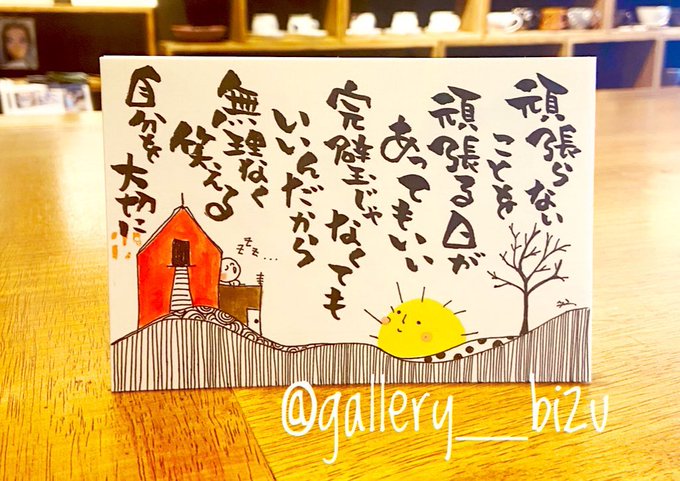 頑張らない
ことを
頑張る日が
あってもいい
完璧じゃ
なくても
いいんだから
無理なく
笑える
自分を
大切に
zzz...
@gallery__bizu